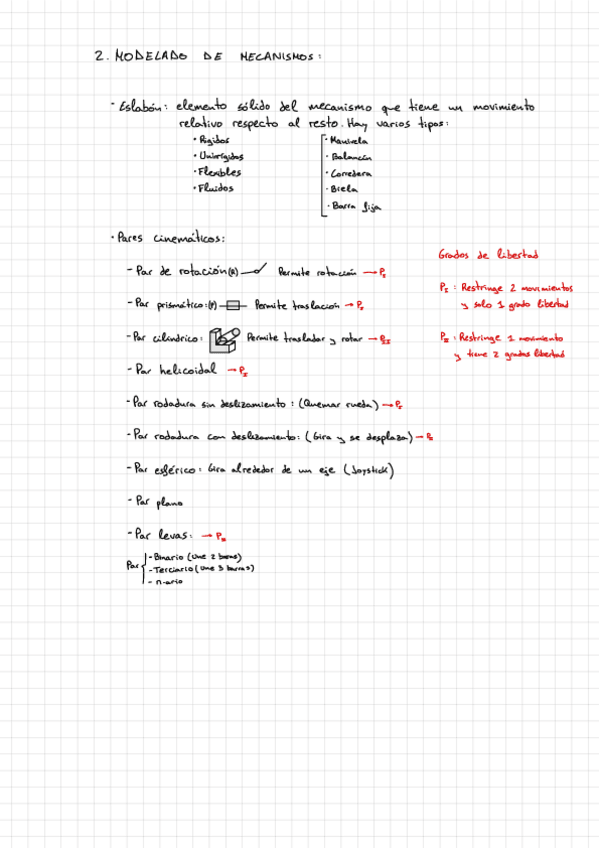 2. MODELADO DE MECANISMOS:
· Eslabón: elemento sólido del mecanismo que tiene un movimiento
relativo respecto al resto. Hay varios tipos:
· Rígidos
· Unirígidos
· Flexibles
· Fluidos
· Manivela
· Balancín
· Corredera
· Biela
· Barra fija
· Pares cinemáticos:
- Par de rotación(R) Permite rotación → PI
- Par prismático:(P) Permite traslación → PI
- Par cilíndrico: Permite trasladar y rotar → PII
- Par helicoidal → PI
- Par rodadura sin deslizamiento: (Quemar rueda) → PI
- Par rodadura con deslizamiento: (Gira y se desplaza) →
- Par esférico: Gira alrededor de un eje (Joystick)
- Par plano
- Par levas: → PII
Par
- Binario (Une 2 barras)
- Terciario (Une 3 barras)
- n-ario
Grados de libertad
PI : Restringe 2 movimientos
y solo 1 grado libertad
PII : Restringe 1 movimiento
y tiene 2 grados libertad